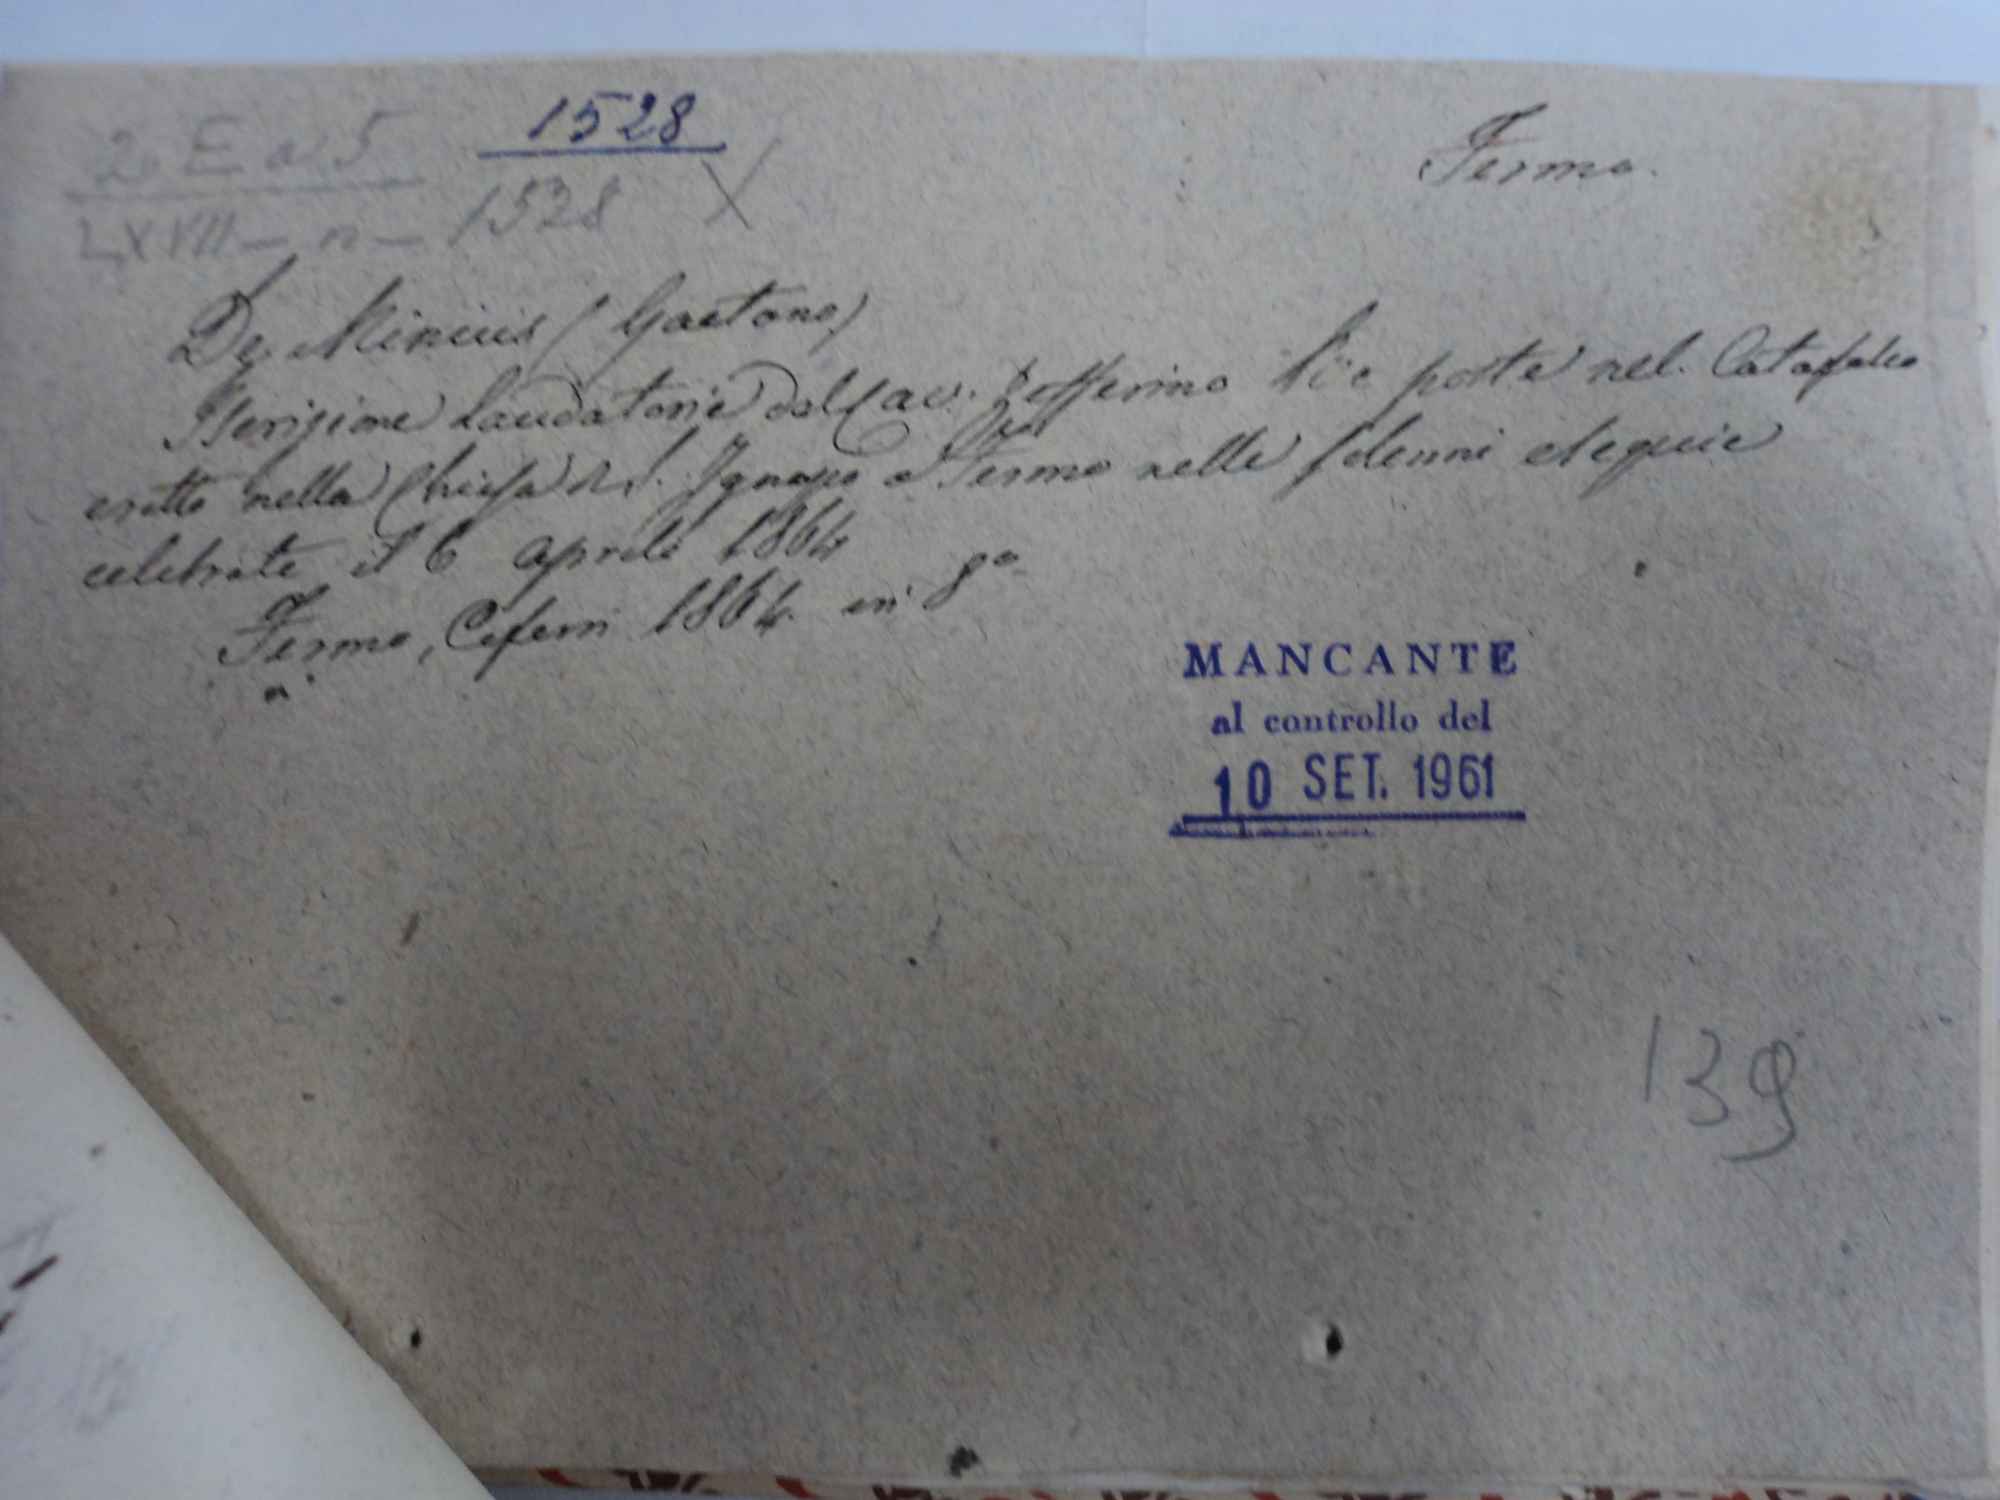 2. E a 5
1528
Fermo.
LXVIII - n - 1528 X
De Minicis (Gaetano)
Iscrizione laudatorie del Cav. poste nel Catafalco
eretto nella Chiesa di S. Ignazio a Fermo nelle solenni esequie
celebrate il 6 aprile 1864
Fermo, Ceferri 1864. in 8°
MANCANTE
al controllo del
10 SET. 1961
139